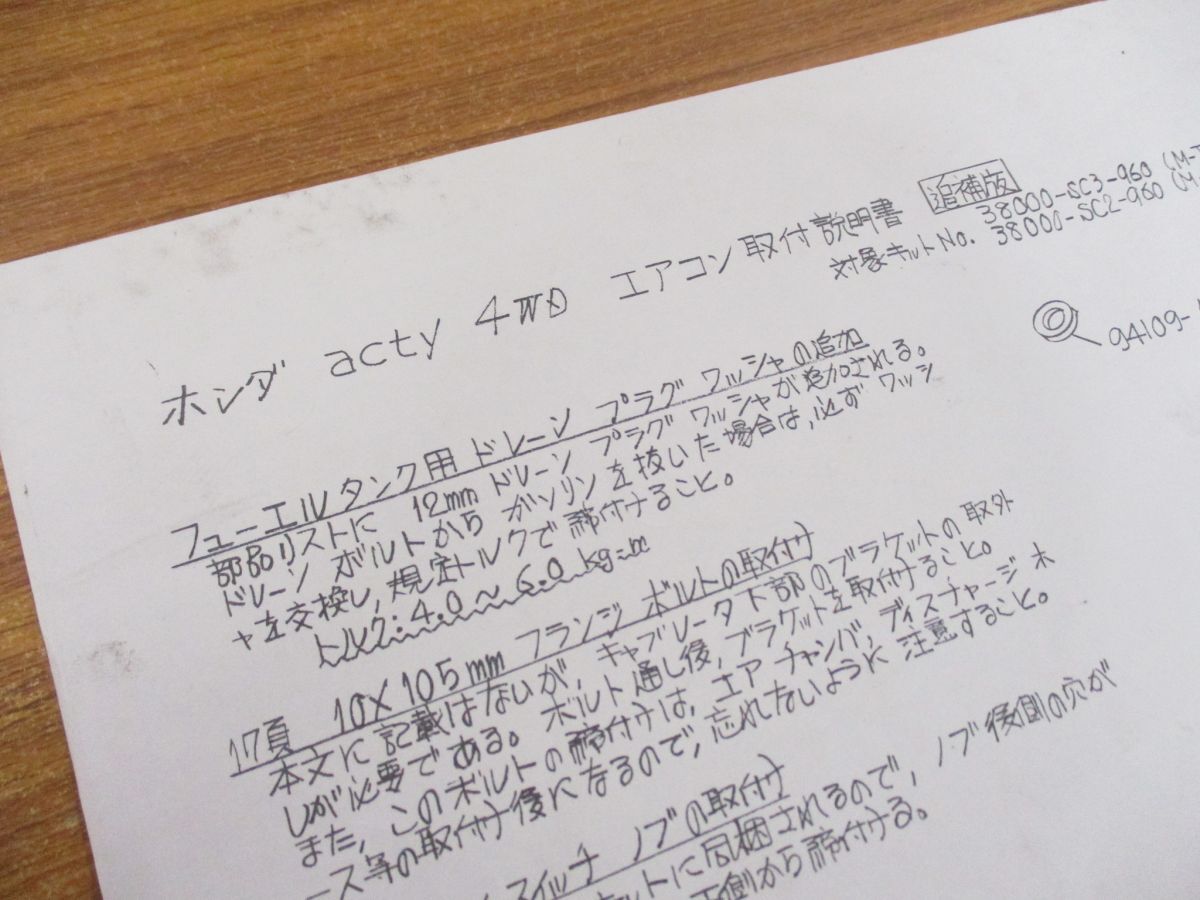 ホンダ acty 4WD エアコン取付説明書 追補版
対象キットNo. 38000-SC3-960 (M-
38000-SC2-960 (M-
94109-
フューエルタンク用 ドレーン プラグ ワッシャの追加
部品リストに 12mm ドレーン プラグ ワッシャが追加される。
ドレーン ボルトから ガソリンを抜いた場合は,必ず ワッシ
ャを交換し,規定トルクで締付けること。
トルク:4.0〜6.0 kg-m
17頁 10X105mm フランジ ボルトの取付け
本文に記載はないが, キャブレータ下部のブラケットの取外
しが必要である。ボルト通し後,ブラケットを取付けること。
また,このボルトの締付けは,エア チャンバ,ディスチャージ ホ
ース等の取付け後になるので,忘れないように注意すること。
スイッチ ノブの取付け
ットに同梱されるので,ノブ後側の穴が
側から締付ける。